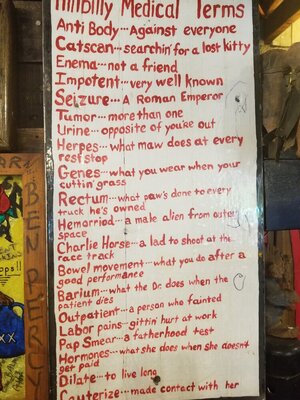 Hillbilly Medical Terms
Anti Body...Against everyone
Catscan...searchin' for a lost kitty
Enema...not a friend
Impotent...very well known
Seizure...A Roman Emperor
Tumor...more than one
Urine...opposite of you're out
Herpes...what maw does at every
rest stop
Genes...what you wear when your
cuttin' grass
Rectum...what paw's done to every
truck he's owned
Hemorriod...a male alien from outer
space
Charlie Horse...a lad to shoot at the
race track
Bowel movement...what you do after a
good performance
Barium...what the Dr. does when the
patient dies
Outpatient...a person who fainted
Labor pains...gittin' hurt at work
Pap Smear...a fatherhood test
Hormones...what she does when she doesn't
get paid
Dilate...to live long
Cauterize...made contact with her
BE
PERCY